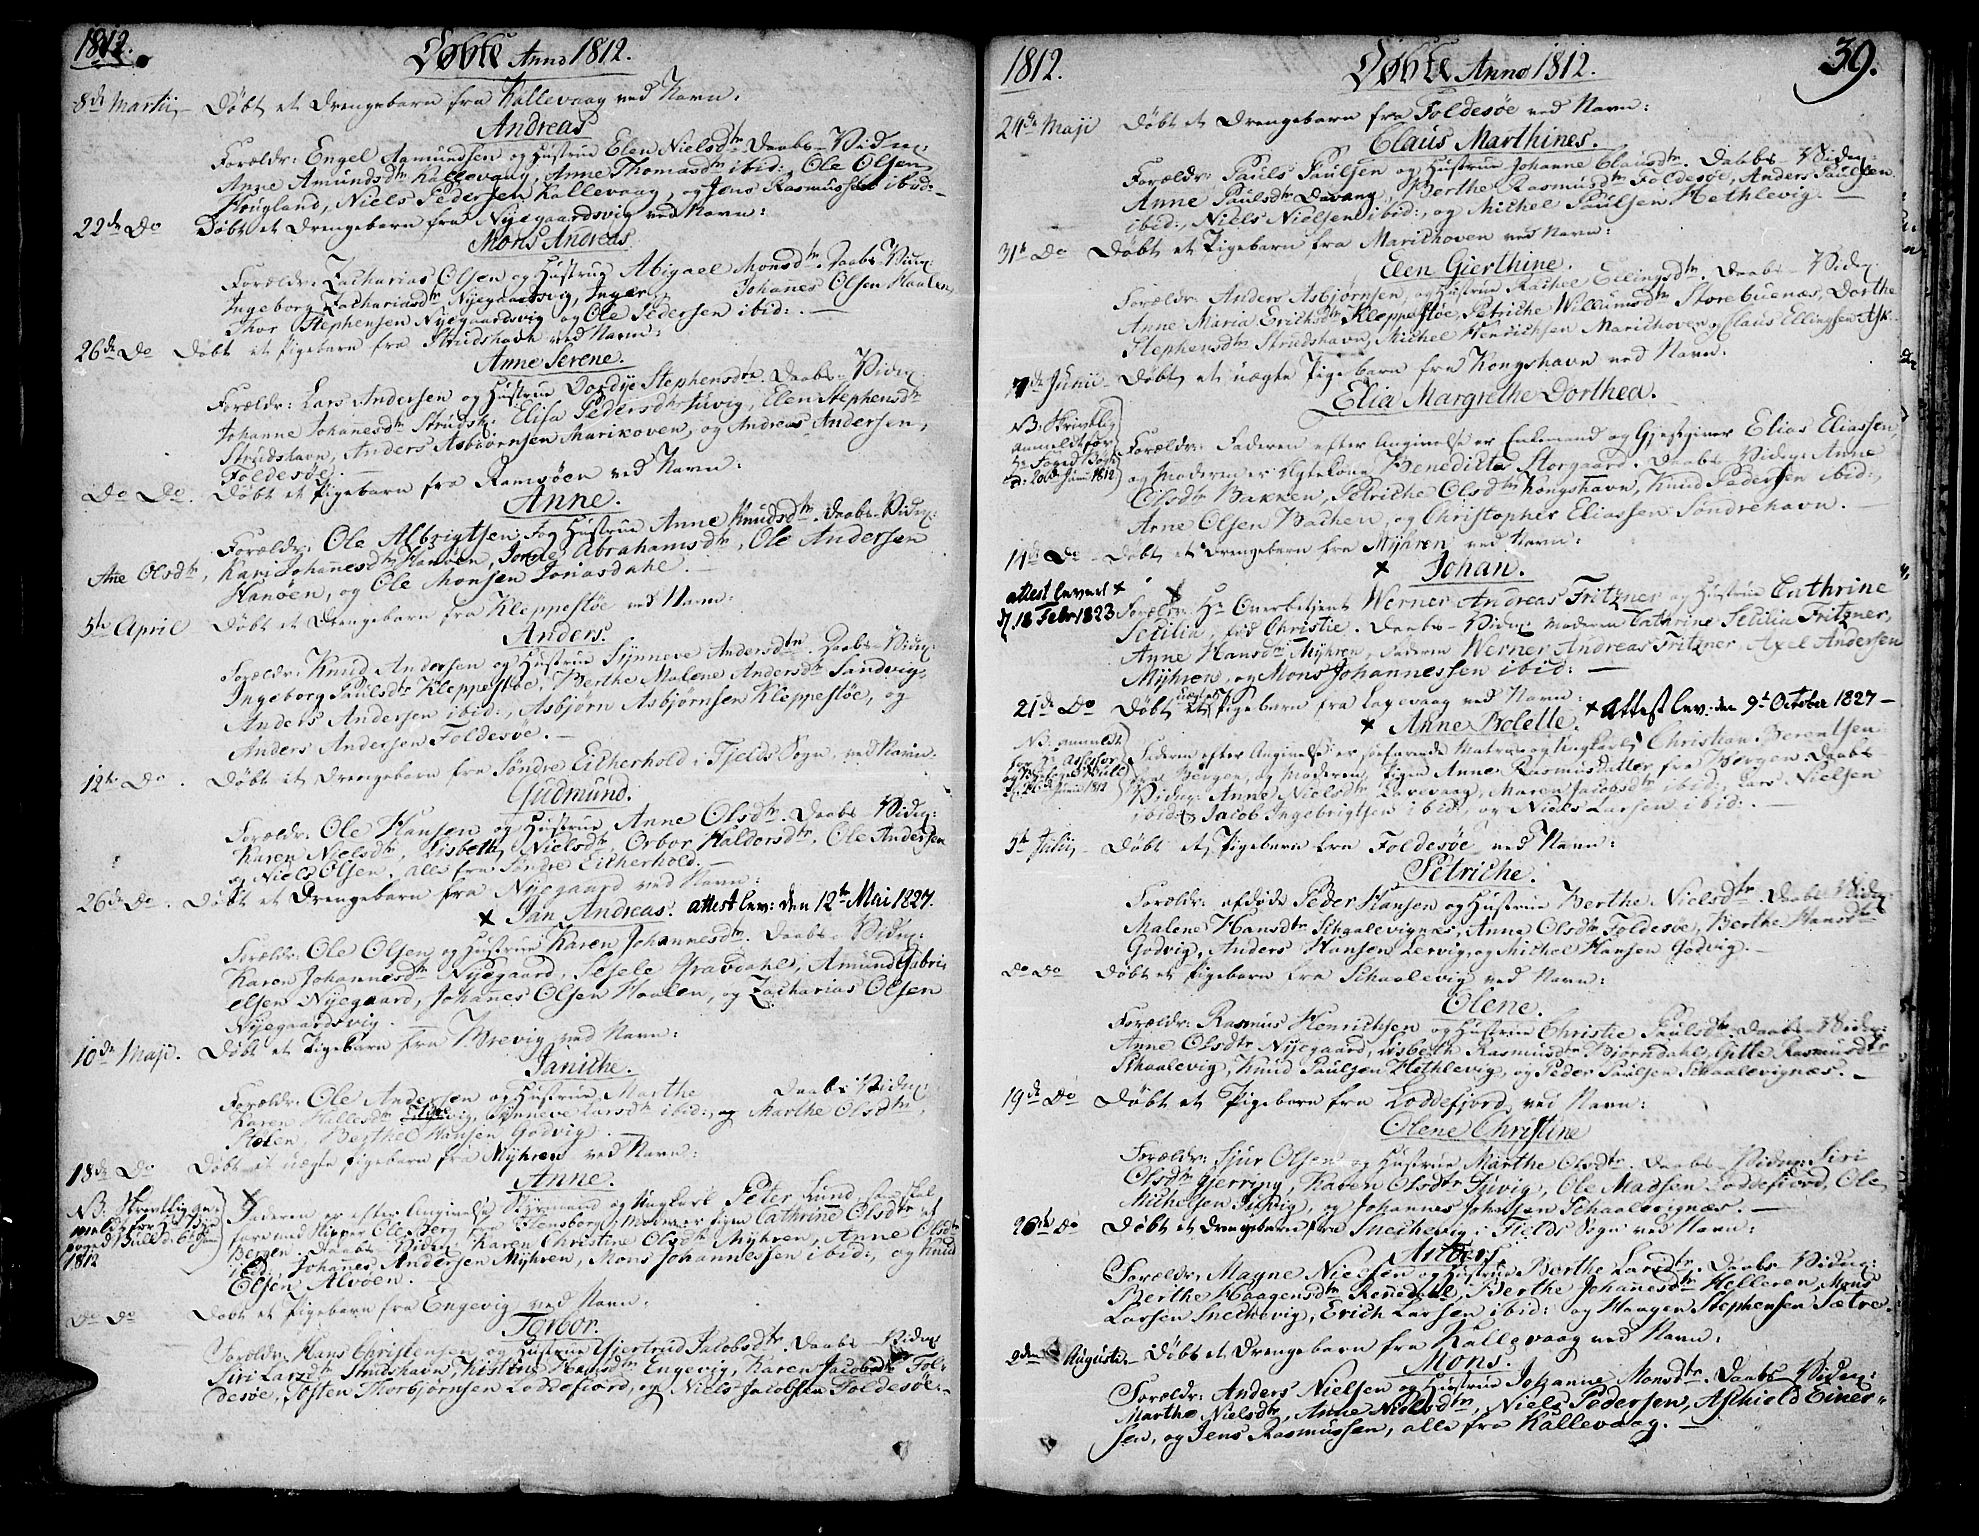 1812.
Døbte Anno 1812.
8de Martii, Døbt et Drengebarn fra Kallevaag ved Navn:
Andreas
Forældr: Engel Aamundsen og Hustrue Elen Nielsdtr. Daabs-Vidn:
Anne Amundsdtr Kallevaag, Anne Thomasdtr ibid:, Ole Olsen
Hougland, Niels Pedersen Kallevaag, og Jens Rasmussen ibid:
22de Do Døbt et Drengebarn fra Nyegaardsvig ved Navn:
Mons Andreas
Forældr: Zacharias Olsen og Hustrue Abigael Monsdtr. Daabs-Vidn:
Ingeborg Zachariasdtr Nyegaardsvig, Inger Johannes Olsen Haalen,
Thor Stephensen Nyegaardsvig og Ole Pedersen ibid:. —
26de Do Døbt et Pigebarn fra Strudshavn ved Navn:
Anne Serene.
Forældr: Lars Andersen og Hustrue Dordye Stephensdtr. Daabs-Vidn:
Johanne Johanesdtr Strudsh: Elisa Pedersdtr Juvig, Elen Stephensdtr
Strudshavn, Anders Asbiørnsen Marikoven, og Andreas Andersen,
Foldesøe. —
Do Do. Døbt et Pigebarn fra Ramsøen ved Navn:
Anne.
Forældr: Ole Albrigtsen, og Hustrue Anne Knudsdtr. Daabs-Vidn:
Ane Olsdtr, Kari Johannesdtr Hanøen, Jorne Abrahamsdtr, Ole Andersen
Hanøen, og Ole Monsen Joriasdahl. —
5te April Døbt et Drengebarn fra Kleppestøe ved Navn:
Anders.
Forældr: Knud Andersen og Hustrue Synneve Andersdtr. Daabs-Vidn:
Ingeborg Paulsdtr Kleppestøe, Berthe Malene Andersdtr Sandvig,
Anders Andersen ibid:, Asbjørn Asbjørnsen Kleppestøe, og
Anders Andersen Foldesøe. —
12te Do. Døbt et Drengebarn fra Søndre Eitherhold i Fjelds Sogn, ved Navn:
Gudmund.
Forældr: Ole Hansen og Hustrue Anne Olsdtr. Daabs-Vidn:
Karen Nielsdtr, Lisbeth Nielsdtr, Orbor Haldorsdtr, Ole Andersen
og Niels Olsen, alle fra Søndre Eitherhold. —
26de Do. Døbt et Drengebarn fra Nyegaard ved Navn:
x Jan Andreas. attest lev: den 12te Mai 1827.
Forældr: Ole Olsen og Hustrue Karen Johannesdtr. Daabs-Vidn:
Karen Johannesdtr Nyegaard, Sesele Gravdahl, Amund Gabri
elsen Nyegaard, Johanes Olsen Haalen, og Zacharias Olsen
Nyegaardsvig. —
10de Maji. Døbt et Pigebarn fra Brevig ved Navn:
Janiche.
Forældr: Ole Andersen og Hustrue Marthe Daabs-Vidn:
Karen Kallesdtr Synneve Larsdtr ibid:, og Marthe Olsdtr,
Stølen, Berthel Hansen Godvig. —
18de Do Døbt et uægte Pigebarn fra Myhren ved Navn:
Anne.
NB. Skriftlig an-
meldt for Hr
Foged Bull d: 6te Juni
1812
Faderen er efter Angivelse Styrmand og Ungkarl Peter Lund som skal
fare med Skipper Ole Berg fra Flensborg, Moder er Pigen Cathrine Olsdtr af
Bergen. Daabs-Vidn: Karen Christine Olsdtr Myhren, Anne Olsdtr
ibid:, Johannes Andersen Myhren, Mons Johannessen ibid:, og Knud
Elsen Alvøen. —
Do Do Døbt et Pigebarn fra Engevig ved Navn:
Torbor.
Forældr: Hans Christensen og Hustrue Gjertrud Jacobsdtr. Daabs-Vidn:
Siri Larsdtr Strudshavn, Kistine Hansdtr Engevig, Karen Jacobsdtr Fol-
desøe, Tosten Thorbjørnsen Loddefiord, og Niels Jacobsen Foldesøe. —
1812.
Døbte Anno 1812.
39.
24de Maji Døbt et Drengebarn fra Foldesøe ved Navn:
Claus Marthines.
Forældr: Pauls Paulsen og Hustrue Johanne Clausdtr. Daabs-Vidn:
Anne Paulsdtr Davang, Berthe Rasmusdtr Foldesøe, Anders Paulsen
ibid:, Niels Nielsen ibid:, og Michel Paulsen Hethlevig. —
31te Do Døbt et Pigebarn fra Marichoven ved Navn:
Elen Gierthine.
Forældr: Anders Asbjørnsen, og Hustrue Rachel Ellingsdtr. Daabs-Vidn:
Anne Maria Erichsdtr Kleppestøe, Petriche Willumsdtr Storebuenæs, Dorthe
Stephensdtr Strudshavn, Michel Henrichsen Marichoven, og Claus Ellingsen Ask.
7de Junii Døbt et uægte Pigebarn fra Kongshavn ved Navn:
Elia Margrethe Dorthea.
NB. Skriftlig
anmeldt for
Hr Foged Bull
d: 20de Juni 1812
Forældr: Faderen efter Angivelse er Enkemand og Gjestgiver Elias Eliassen,
og Moderen er Ugtekone Benedicte Storgaard. Daabs-Vidn: Anne
Olsdtr Bakken, Petriche Olsdtr Kongshavn, Knud Pedersen ibid:,
Arne Olsen Bachen, og Christopher Eliassen Søndrehavn. —
14de Do — Døbt et Drengebarn fra Myhren ved Navn:
x Johan.
attest leveret x
d. 18 Febr 1823
Forældr: Hr Overbetjent Werner Andreas Fritzner og Hustrue Cathrine
Setilia, fød Christie. Daabs-Vidn: Moderen Cathrine Setilia Fritzner,
Anne Hansdtr Myhren, Faderen Werner Andreas Fritzner, Axel Andersen
Myhren, og Mons Johannessen ibid: —
21de Do Døbt et uægte Pigebarn fra Lagevaag ved Navn:
x Anne Bolette. x Attest lev: den 9d October 1827 —
NB. anmeldt
for Hr Assessor
og Foged Bull
1812
Faderen efter Angivelse er søefarende Matros og Ungkarl Christian Berentsen
fra Bergen, og Moderen Pigen Anne Rasmusdatter fra Bergen. Daabs-
Vidn: Anne Nielsdtr Lavevaag, Maren Jacobsdtr ibid:, Lars Nielsen
ibid:, Jacob Ingebrigtsen ibid:, og Niels Larsen ibid:. —
5te Julii, Døbt et Pigebarn fra Foldesøe ved Navn:
Petriche.
Forældr: afdøde Peder Hansen og Hustrue Berthe Nielsdtr. Daabs-Vidn:
Malene Hansdtr Schaalevignæs, Anne Olsdtr Foldesøe, Berthe Hansdtr
Godvig, Anders Hansen Lervig, og Michel Hansen Godvig. —
Do Do Døbt et Pigebarn fra Schaalevig ved Navn:
Olene.
Forældr: Rasmus Henrichsen og Hustrue Christie Paulsdtr. Daabs-Vidn:
Anne Olsdtr Nyegaard, Lisbeth Rasmusdtr Bjørndahl, Gitte Rasmusdtr
Skaalevig, Knud Paulsen Hethlevig, og Peder Paulsen Schaalevignæs. —
19de Do Døbt et Pigebarn fra Loddefjord, ved Navn:
Olene Christine
Forældr: Sjur Olsen og Hustrue Marthe Olsdtr. Daabs-Vidn: Siri
Olsdtr Gjerring, Karen Olsdtr Juvig, Ole Madsen Loddefiord, Ole
Michelsen Juvig, og Johannes Johansen Schaalevignæs. —
26de Do Døbt et Drengebarn fra Snechevig i Fields Sogn ved Navn:
Forældr: Magne Nielsen og Hustrue Berthe Larsdtr. Daabs-Vidn:
Berthe Haagensdtr Rennedahl, Berthe Johanesdtr Helleren, Mons
Larsen Snechevig, Erich Larsen ibid: og Haagen Stephensen Sætre.
2den Augusti. — Døbt et Drengebarn fra Kallevaag ved Navn:
Mons.
Forældr: Anders Nielsen og Hustrue Johanne Monsdtr. Daabs-Vidn:
Marthe Nielsdtr, Anne Nielsdtr, Niels Pedersen, Aschield Einer-
sen, og Jens Rasmussen, alle fra Kallevaag. —